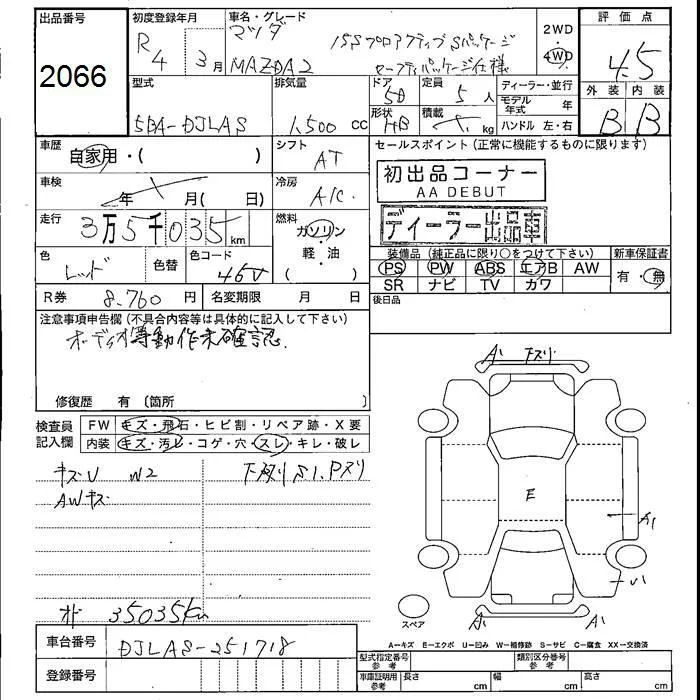 出品番号 初度登録年月 車名・グレード 2WD 評価点
2066
R4 3月
マツダ
MAZDA2
15Sプロアクティブ Sパッケージ
セーフティパッケージ仕様
4WD
4.5
外装 内装
B B
型式 排気量 ドア 定員 ディーラー・並行
5BA-DJLAS 1,500 cc 5D 5人
形状 積載 モデル年式 年
HB kg ハンドル 左・右
車歴 自家用・( ) シフト AT
セールスポイント (正常に機能するものに限ります)
初出品コーナー
AA DEBUT
ディーラー出品車
車検 年 月( 日) 冷房 A/C
走行 3万5千035 km 燃料 ガソリン・軽・油 ( )
装備品 (純正品に限り○をつけて下さい) 新車保証書
PS PW ABS エアB AW 有・無
SR ナビ TV カワ
色 レッド 色替 色コード 46V
後日品
R券 8,760円 名変期限 月 日
注意事項申告欄 (不具合内容等は具体的に記入して下さい)
オーディオ等動作未確認.
修復歴 有 〔箇所 〕
検査員記入欄 FW キズ・飛石・ヒビ割・リペア跡・X要
内装 キズ・汚レ・コゲ・穴・スレ・キレ・破レ
キズU W2 下スリ S1.Pスリ
AWキズ
オド 35035km
A1 下スリ
E
A1
A1 A1
スペア
A–キズ E–エクボ U–凹み W–補修跡 S–サビ C–腐食 XX–交換済
車台番号 DJLAS-251718
登録番号
型式指定番号 参考 類別区分番号 参考
車庫証明用 参考 長さ cm 幅 cm 高さ cm